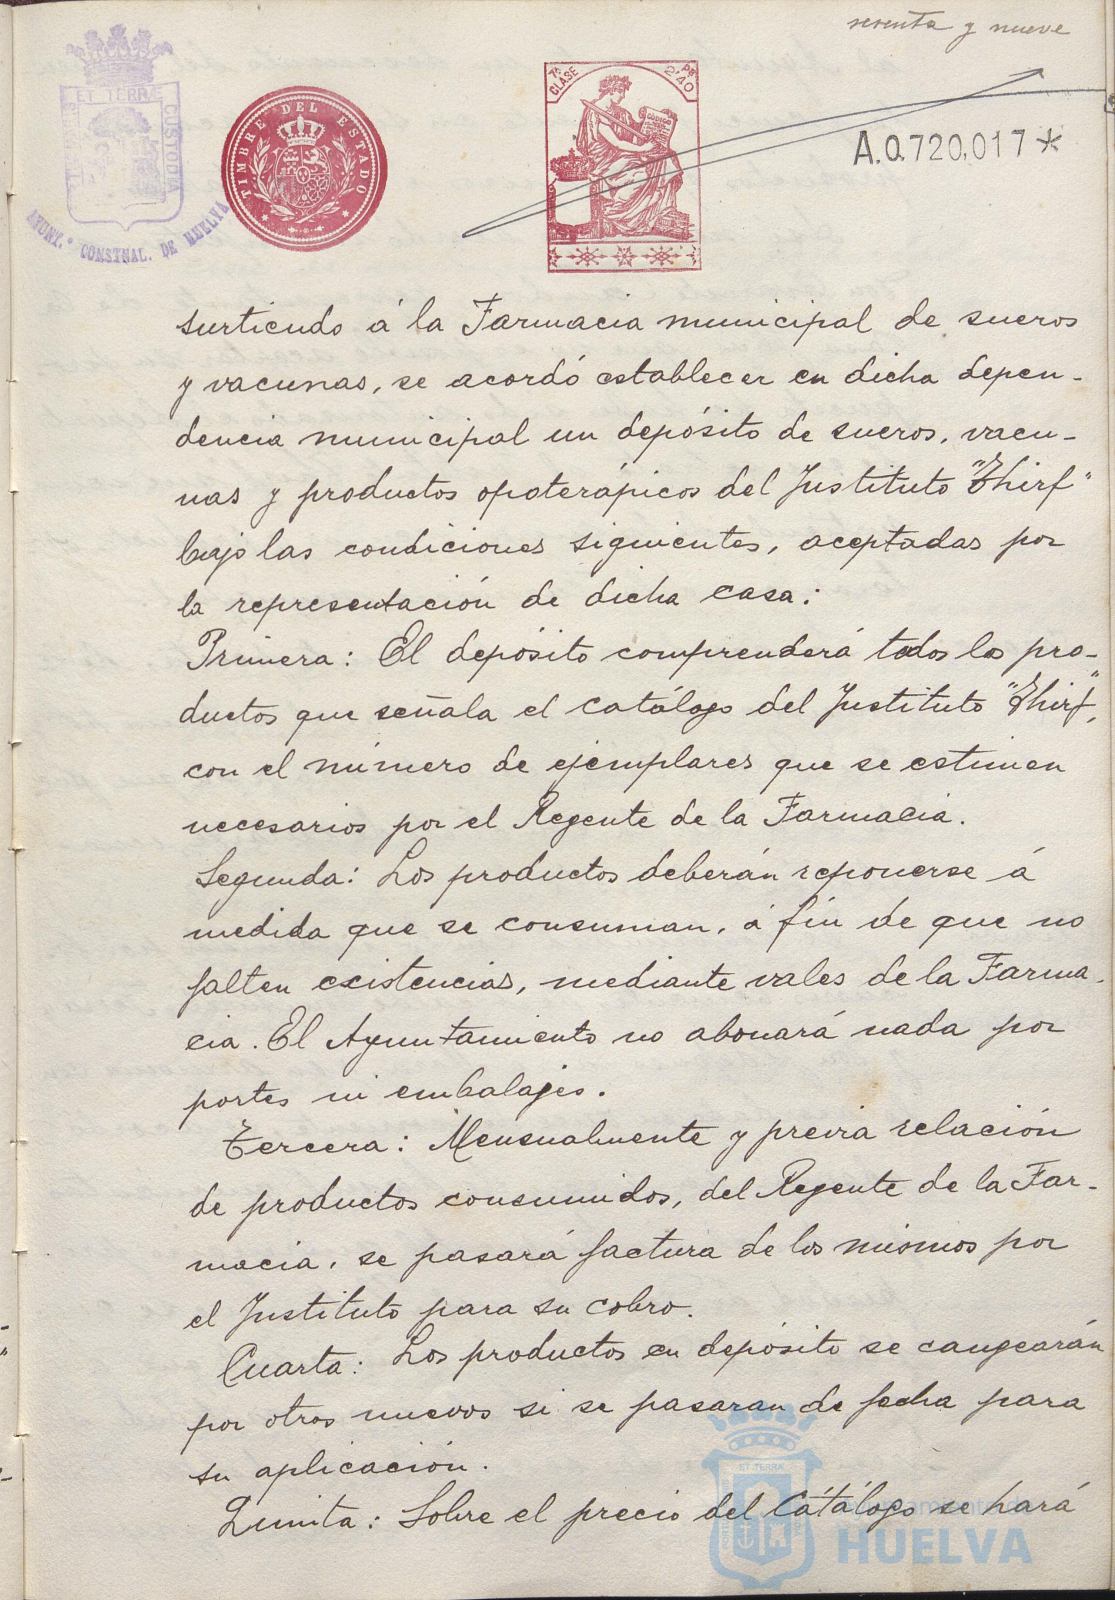 sesenta y nueve
PORTUS MARIS ET TERRÆ CUSTODIA
AYUNT.º CONSTNAL. DE HUELVA
TIMBRE DEL ESTADO
7ª CLASE
2'40
CÓDIGO
A.0.720,017*
surtiendo á la Farmacia municipal de sueros
y vacunas, se acordó establecer en dicha depen-
dencia municipal un depósito de sueros, vacu-
nas y productos opoterápicos del Instituto "Thirf"
bajo las condiciones siguientes, aceptadas por
la representación de dicha casa:
Primera: El depósito comprenderá todos los pro-
ductos que señala el catálogo del Instituto "Thirf",
con el número de ejemplares que se estimen
necesarios por el Regente de la Farmacia.
Segunda: Los productos deberán reponerse á
medida que se consuman, á fin de que no
falten existencias, mediante vales de la Farma-
cia. El Ayuntamiento no abonará nada por
portes ni embalajes.
Tercera: Mensualmente y previa relación
de productos consumidos, del Regente de la Far-
macia, se pasará factura de los mismos por
el Instituto para su cobro.
Cuarta: Los productos en depósito se cangearán
por otros nuevos si se pasaran de fecha para
su aplicación.
Quinta: Sobre el precio del Catálogo se hará
Ayuntamiento de
HUELVA